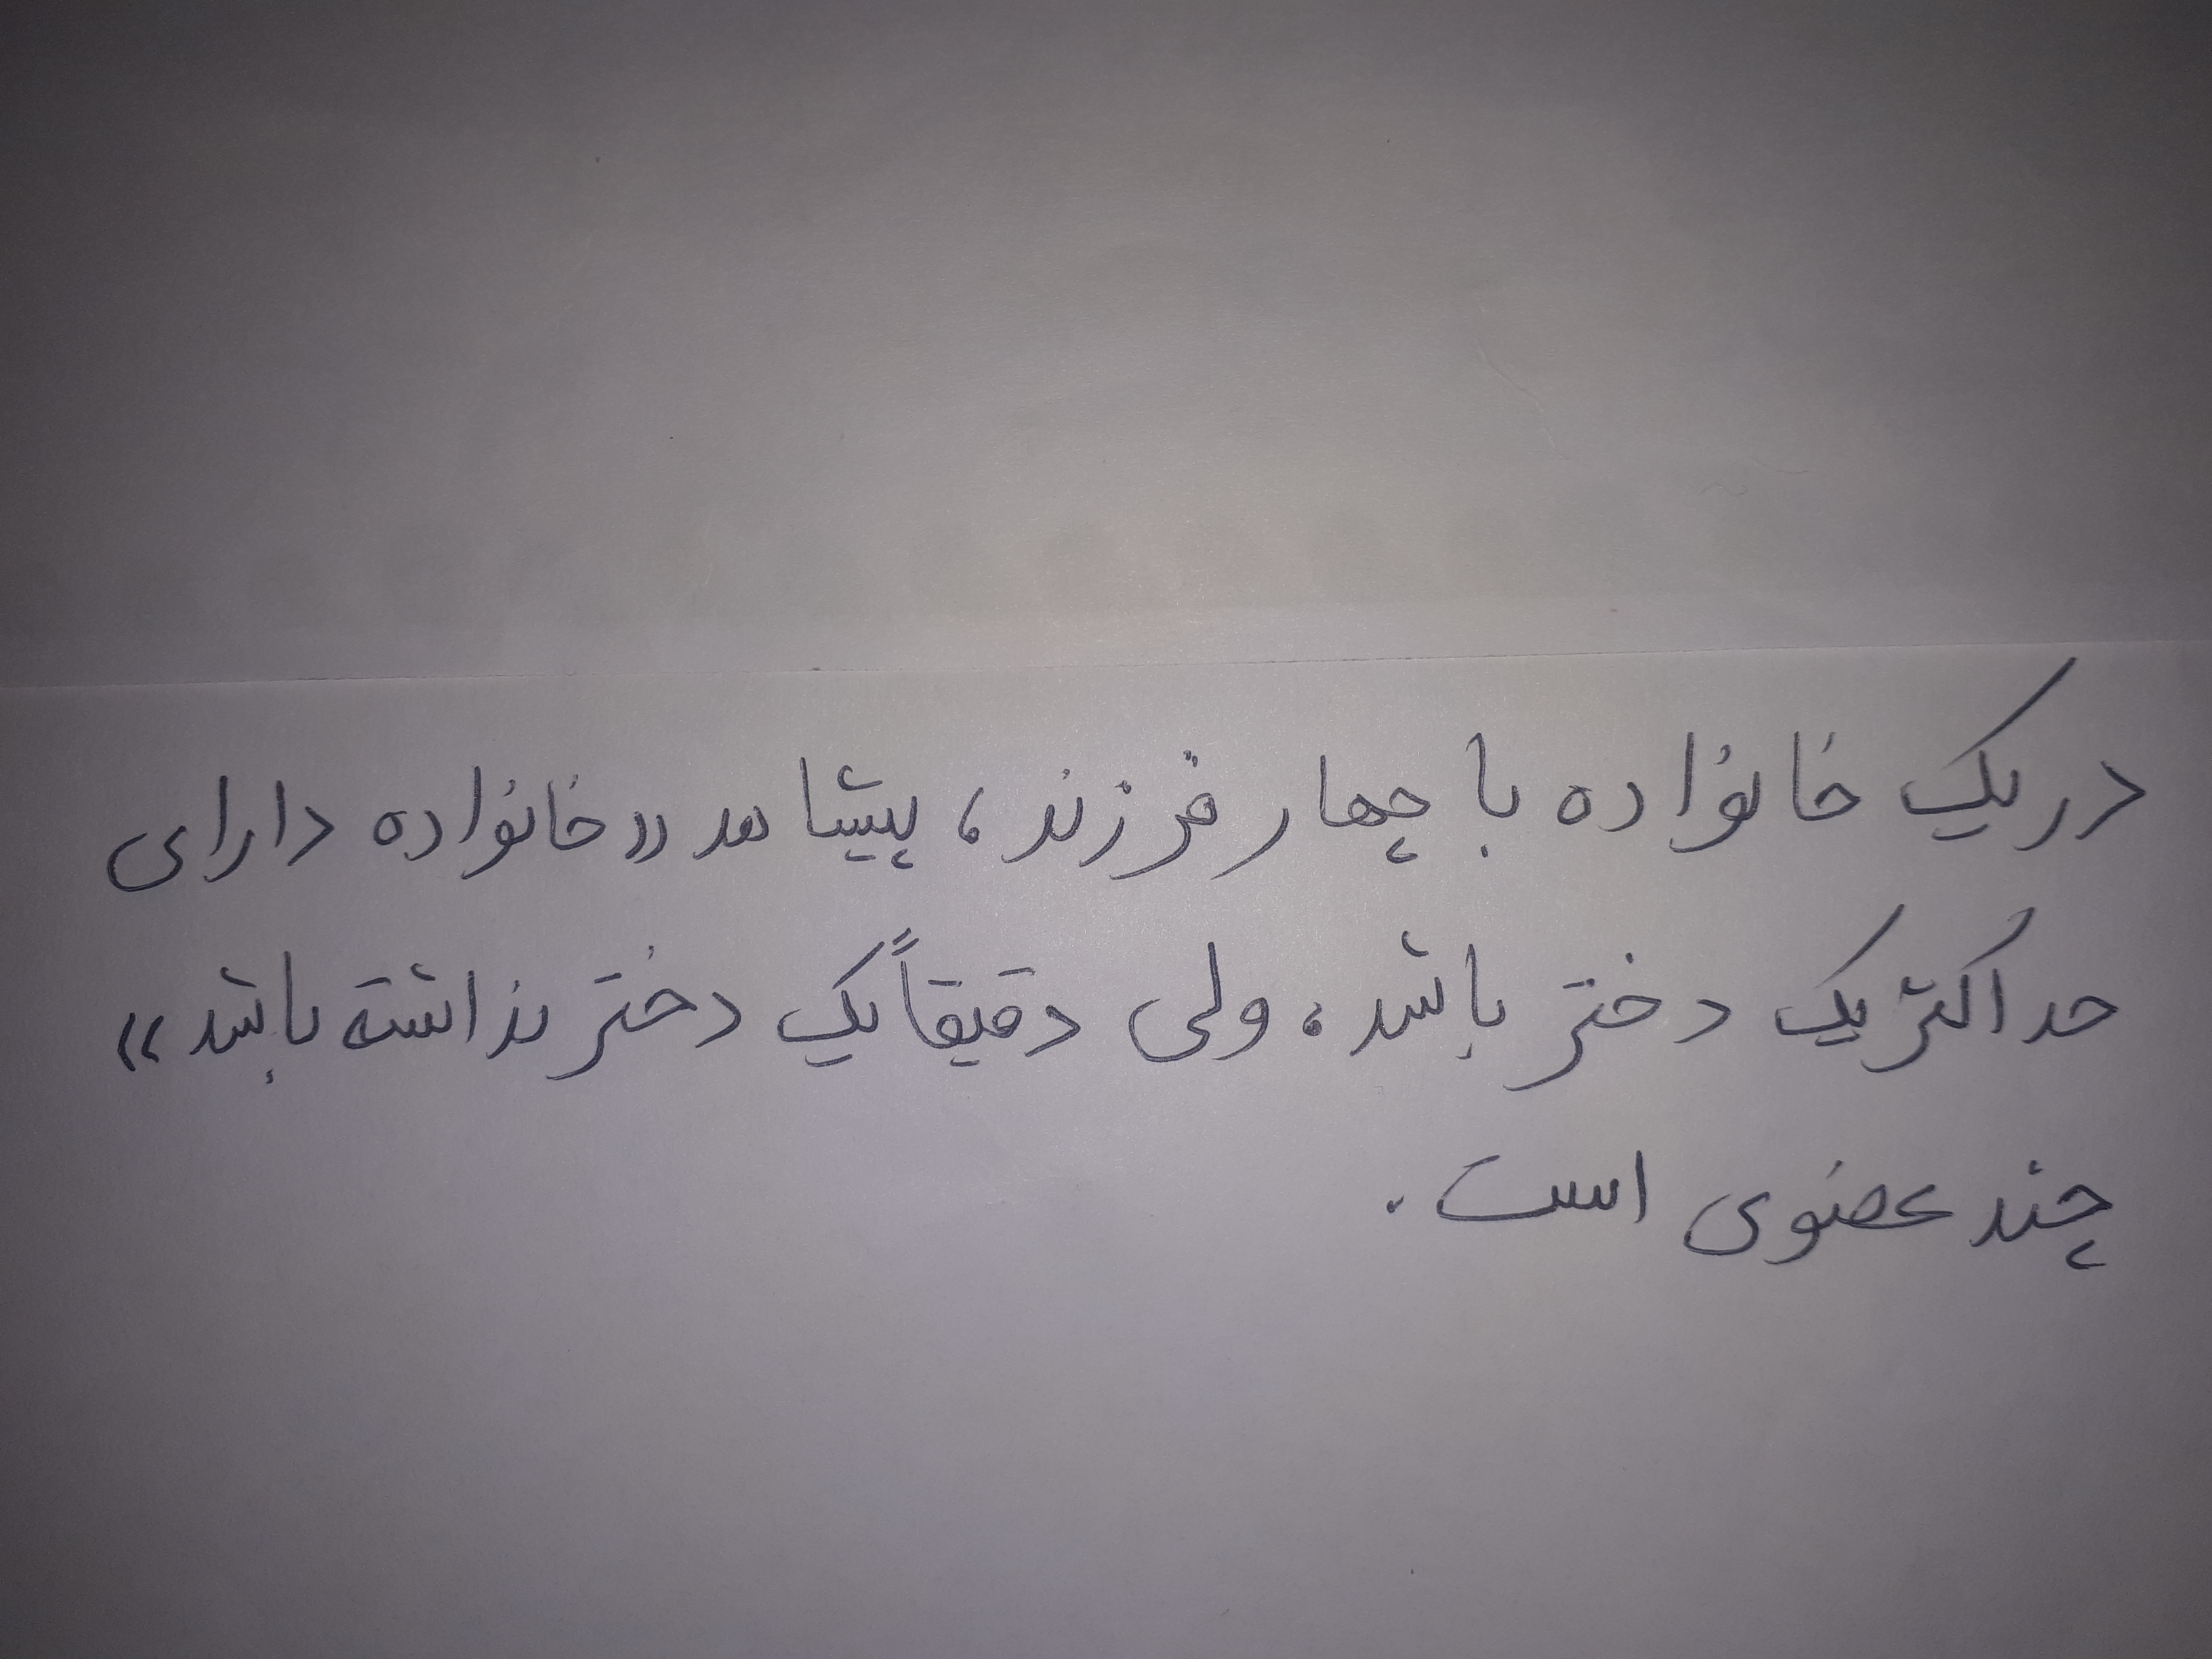 در یک خانواده با چهار فرزند، پیشامد «خانواده دارای
حداکثر یک دختر باشد، ولی دقیقاً یک دختر نداشته باشد»
چند عضوی است.